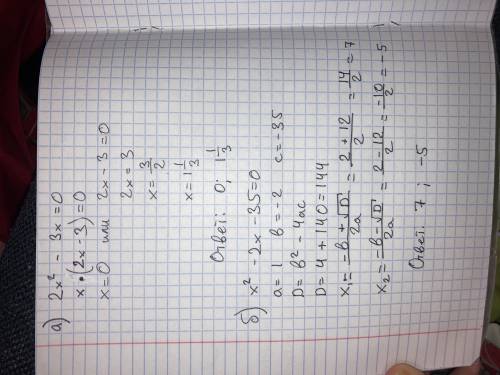 а) 2x² - 3x = 0
x • (2x - 3) = 0
x = 0 или 2x - 3 = 0
2x = 3
x = 3/2
x = 1 1/3
Ответ: 0; 1 1/3
б) x² - 2x - 35 = 0
a = 1 в = -2 c = -35
D = в² - 4ac
D = 4 + 140 = 144
x₁ = (-в + √D)/2a = (2 + 12)/2 = 14/2 = 7
x₂ = (-в - √D)/2a = (2 - 12)/2 = -10/2 = -5
Ответ. 7 ; -5